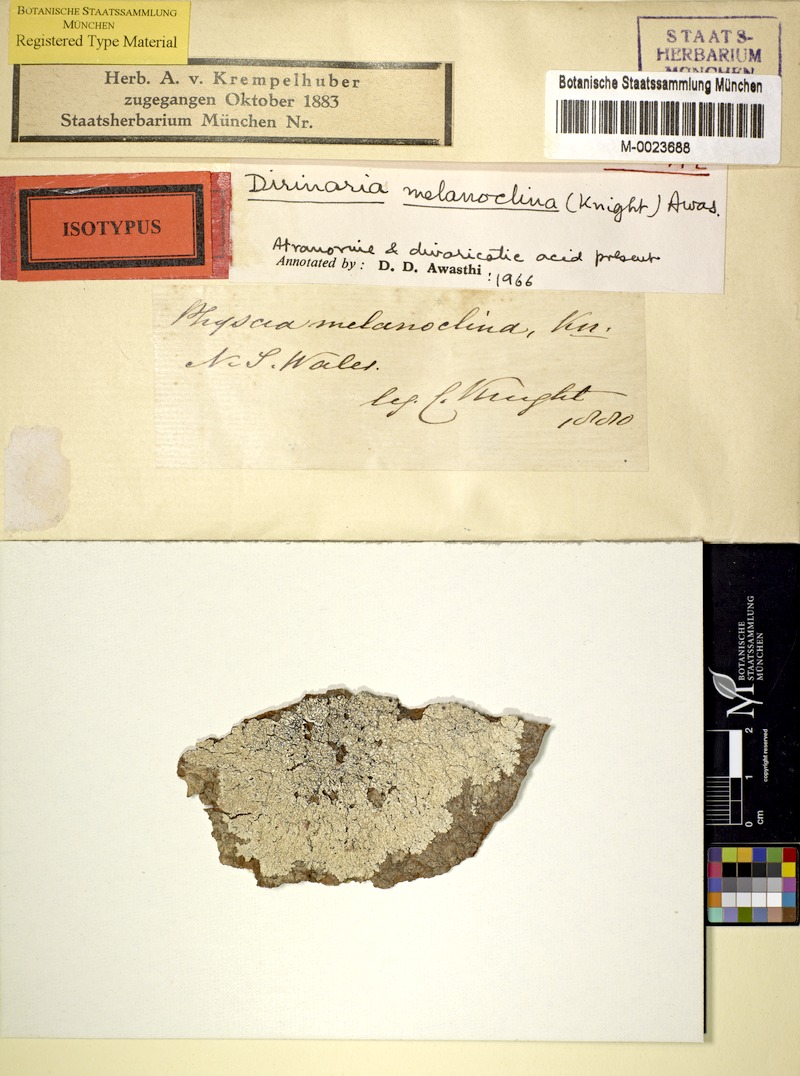 BOTANISCHE STAATSSAMMLUNG
MÜNCHEN
Registered Type Material
STAATS-
HERBARIUM
MÜNCHEN
Herb. A. v. Krempelhuber
zugegangen Oktober 1883
Staatsherbarium München Nr.
Botanische Staatssammlung München
M-0023688
ISOTYPUS
Dirinaria melanoclina (Knight) Awas.
Atranorine & divaricatic acid present
Annotated by: D. D. Awasthi : 1966
Physcia melanoclina, Kn.
N. S. Wales.
leg. C. Knight
1880
BOTANISCHE
STAATSSAMMLUNG
MÜNCHEN
0 1 2
cm
copyright reserved